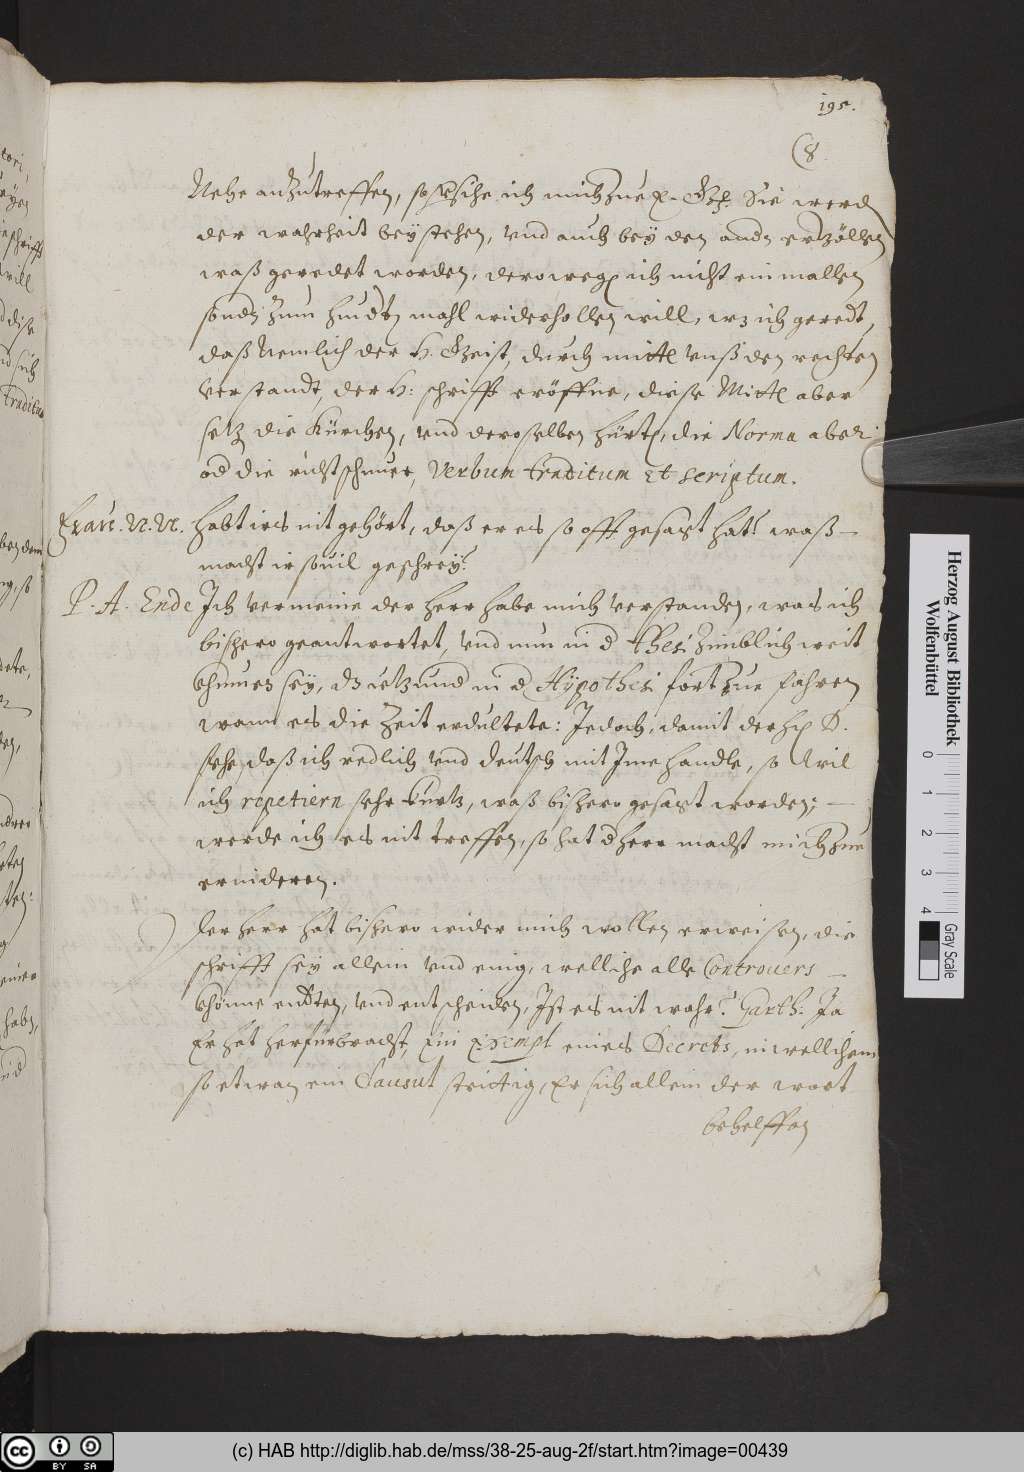 195.
(8
Nehe anzutreffen, so sihe ich mich zue E. Sie werd
der wahrheit beystehen, vnd auch bey den andn erzöllen
waß geredet worden, derowegen ich nicht ein mallen
sondn zum hundtn mahl widerhollen will, wz ich geredt,
daß Nemlich der H. Geist, durch mittel vnß den rechten
Verstandt, der H: schrifft eröffne, diese Mittel aber
setz die Kürchen, vnd deroselben hürten, die Norma aber
od die richtschnuer, Verbum traditum Et scriptum.
habt irs nit gehört, daß er es so offt gesagt hat? waß
macht ir souil geschrey?
P. A. Ende Ich vermeine der herr habe mich verstanden, was ich
bishero geantwortet, vnd nun in d thesi zimblich weit
khumen sey, dz ietzund in d Hÿpothesi fort zue fahren
wann es die Zeit erdultete: Jedoch, damit der hr D.
sehe, daß ich redlich vnd deutsch mit Jme handle, so will
ich repetiern sehr kurtz, waß bishero gesagt worden;
werde ich es nit treffen, so hat d herr macht mich zue
erinderen.
Der herr hat bishero wider mich wollen erweisen, die
schrifft sey allein vnd einig, welliche alle Controuers
khönne endten, vnd entscheiden, Ist es nit wahr? Ja
Er hat herfürbracht, Ein Exempl eines Decrets, in wellichem
so etwan ein Clausul strittig, Er sich allein der wort
behelffen
Herzog August Bibliothek
Wolfenbüttel
0 1 2 3 4
Gray Scale
cc BY SA
(c) HAB http://diglib.hab.de/mss/38-25-aug-2f/start.htm?image=00439